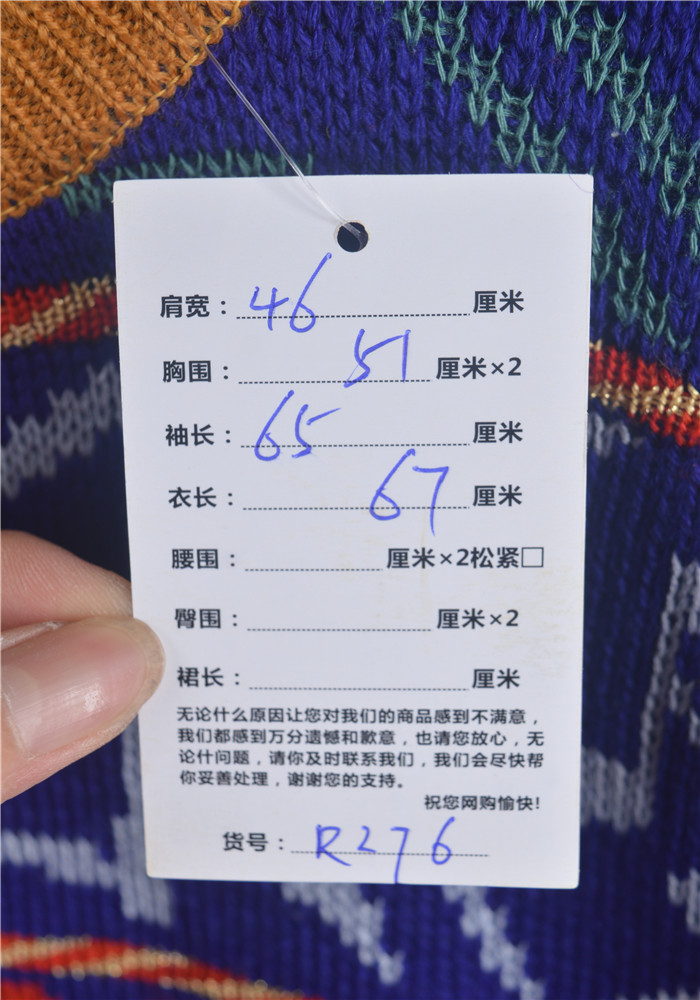 肩宽：46厘米
胸围：51厘米×2
袖长：65厘米
衣长：67厘米
腰围：厘米×2松紧□
臀围：厘米×2
裙长：厘米
无论什么原因让您对我们的商品感到不满意，
我们都感到万分遗憾和歉意，也请您放心，无
论什问题，请你及时联系我们，我们会尽快帮
你妥善处理，谢谢您的支持。
祝您网购愉快!
货号：R276